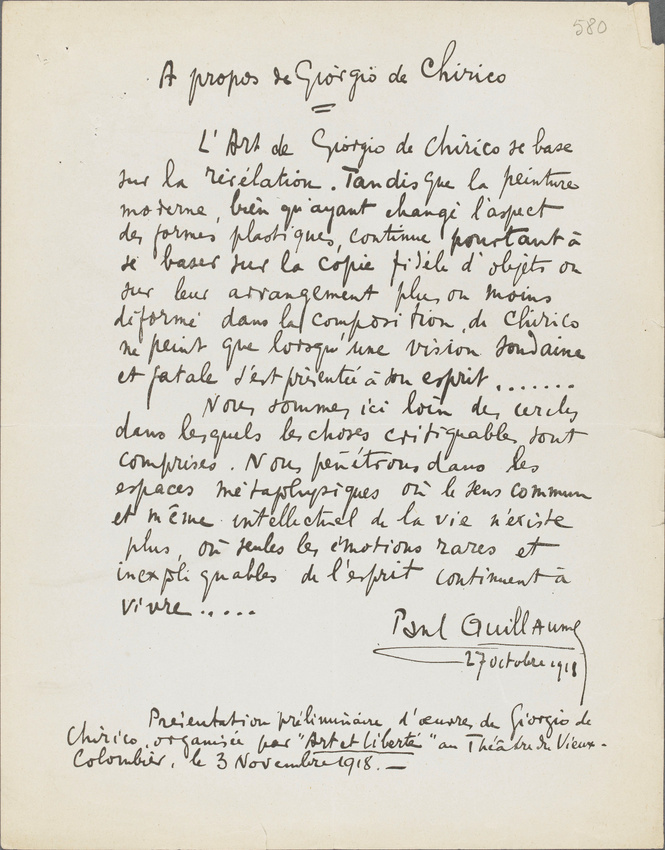 580
A propos de Giorgio de Chirico
L'Art de Giorgio de Chirico se base
sur la révélation. Tandis que la peinture
moderne, bien qu'ayant changé l'aspect
des formes plastiques, continue pourtant à
se baser sur la copie fidèle d'objets ou
sur leur arrangement plus ou moins
déformé dans la composition, de Chirico
ne peint que lorsqu'une vision soudaine
et fatale s'est présentée à son esprit.......
Nous sommes ici loin des cercles
dans lesquels les choses critiquables sont
comprises. Nous pénétrons dans les
espaces métaphysiques où le sens commun
et même intellectuel de la vie n'existe
plus, où seules les émotions rares et
inexpliquables de l'esprit continuent à
vivre.....
Paul Guillaume
27 octobre 1918
Présentation préliminaire d'œuvres de Giorgio de
Chirico, organisée par "Art et Liberté" au Théâtre du Vieux-
Colombier, le 3 Novembre 1918.—